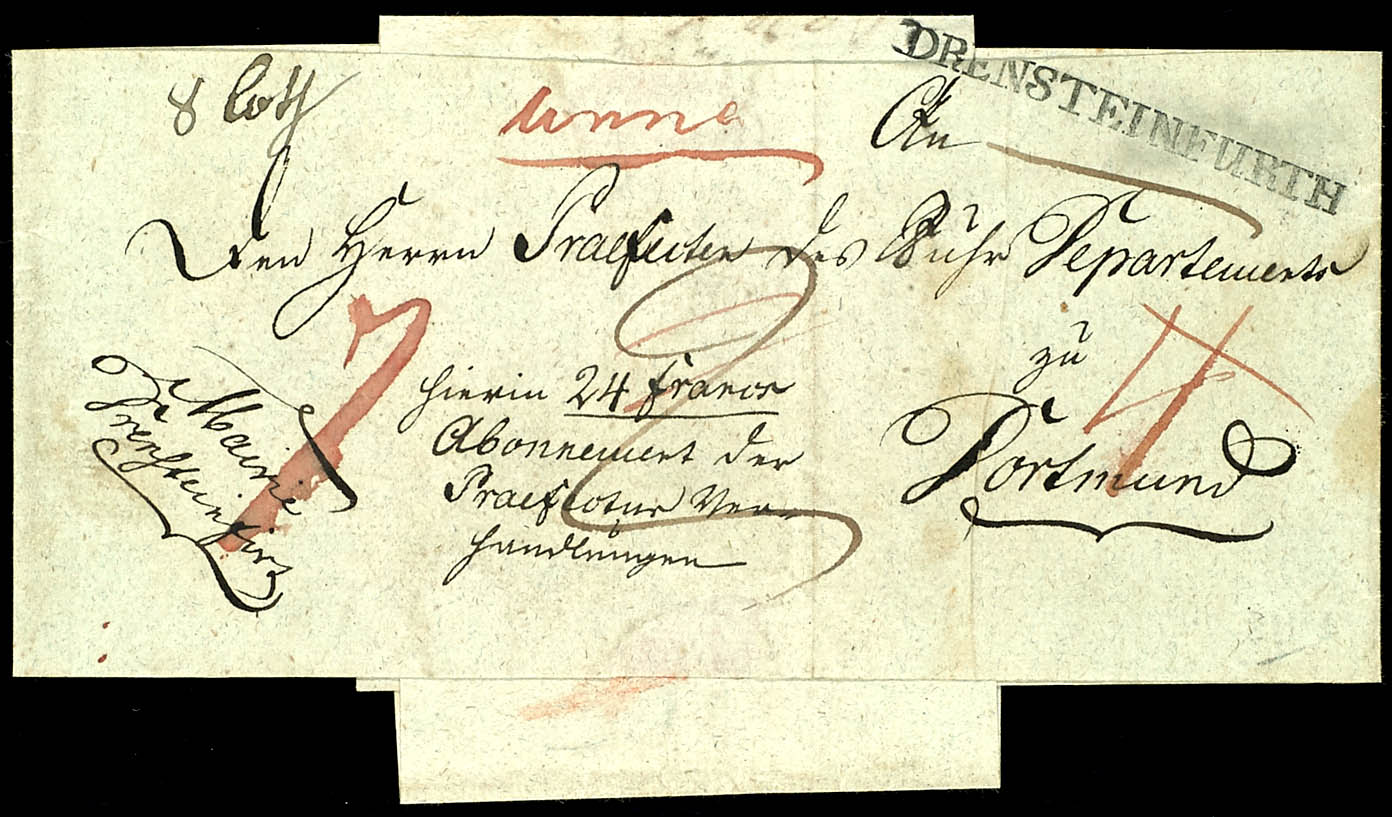 DRENSTEINFURTH
8 Loth
Unna
An
Den Herrn Praefecten des Ruhr Departements
zu
Dortmund
7
4
hierin 24 francs
Abonnement der
Praefectur Ver-
handlungen
Mairie
Drensteinfurt